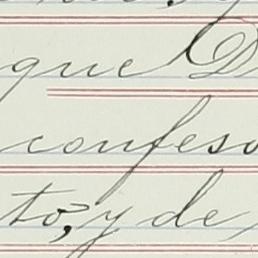 que D
confeso
to, y de